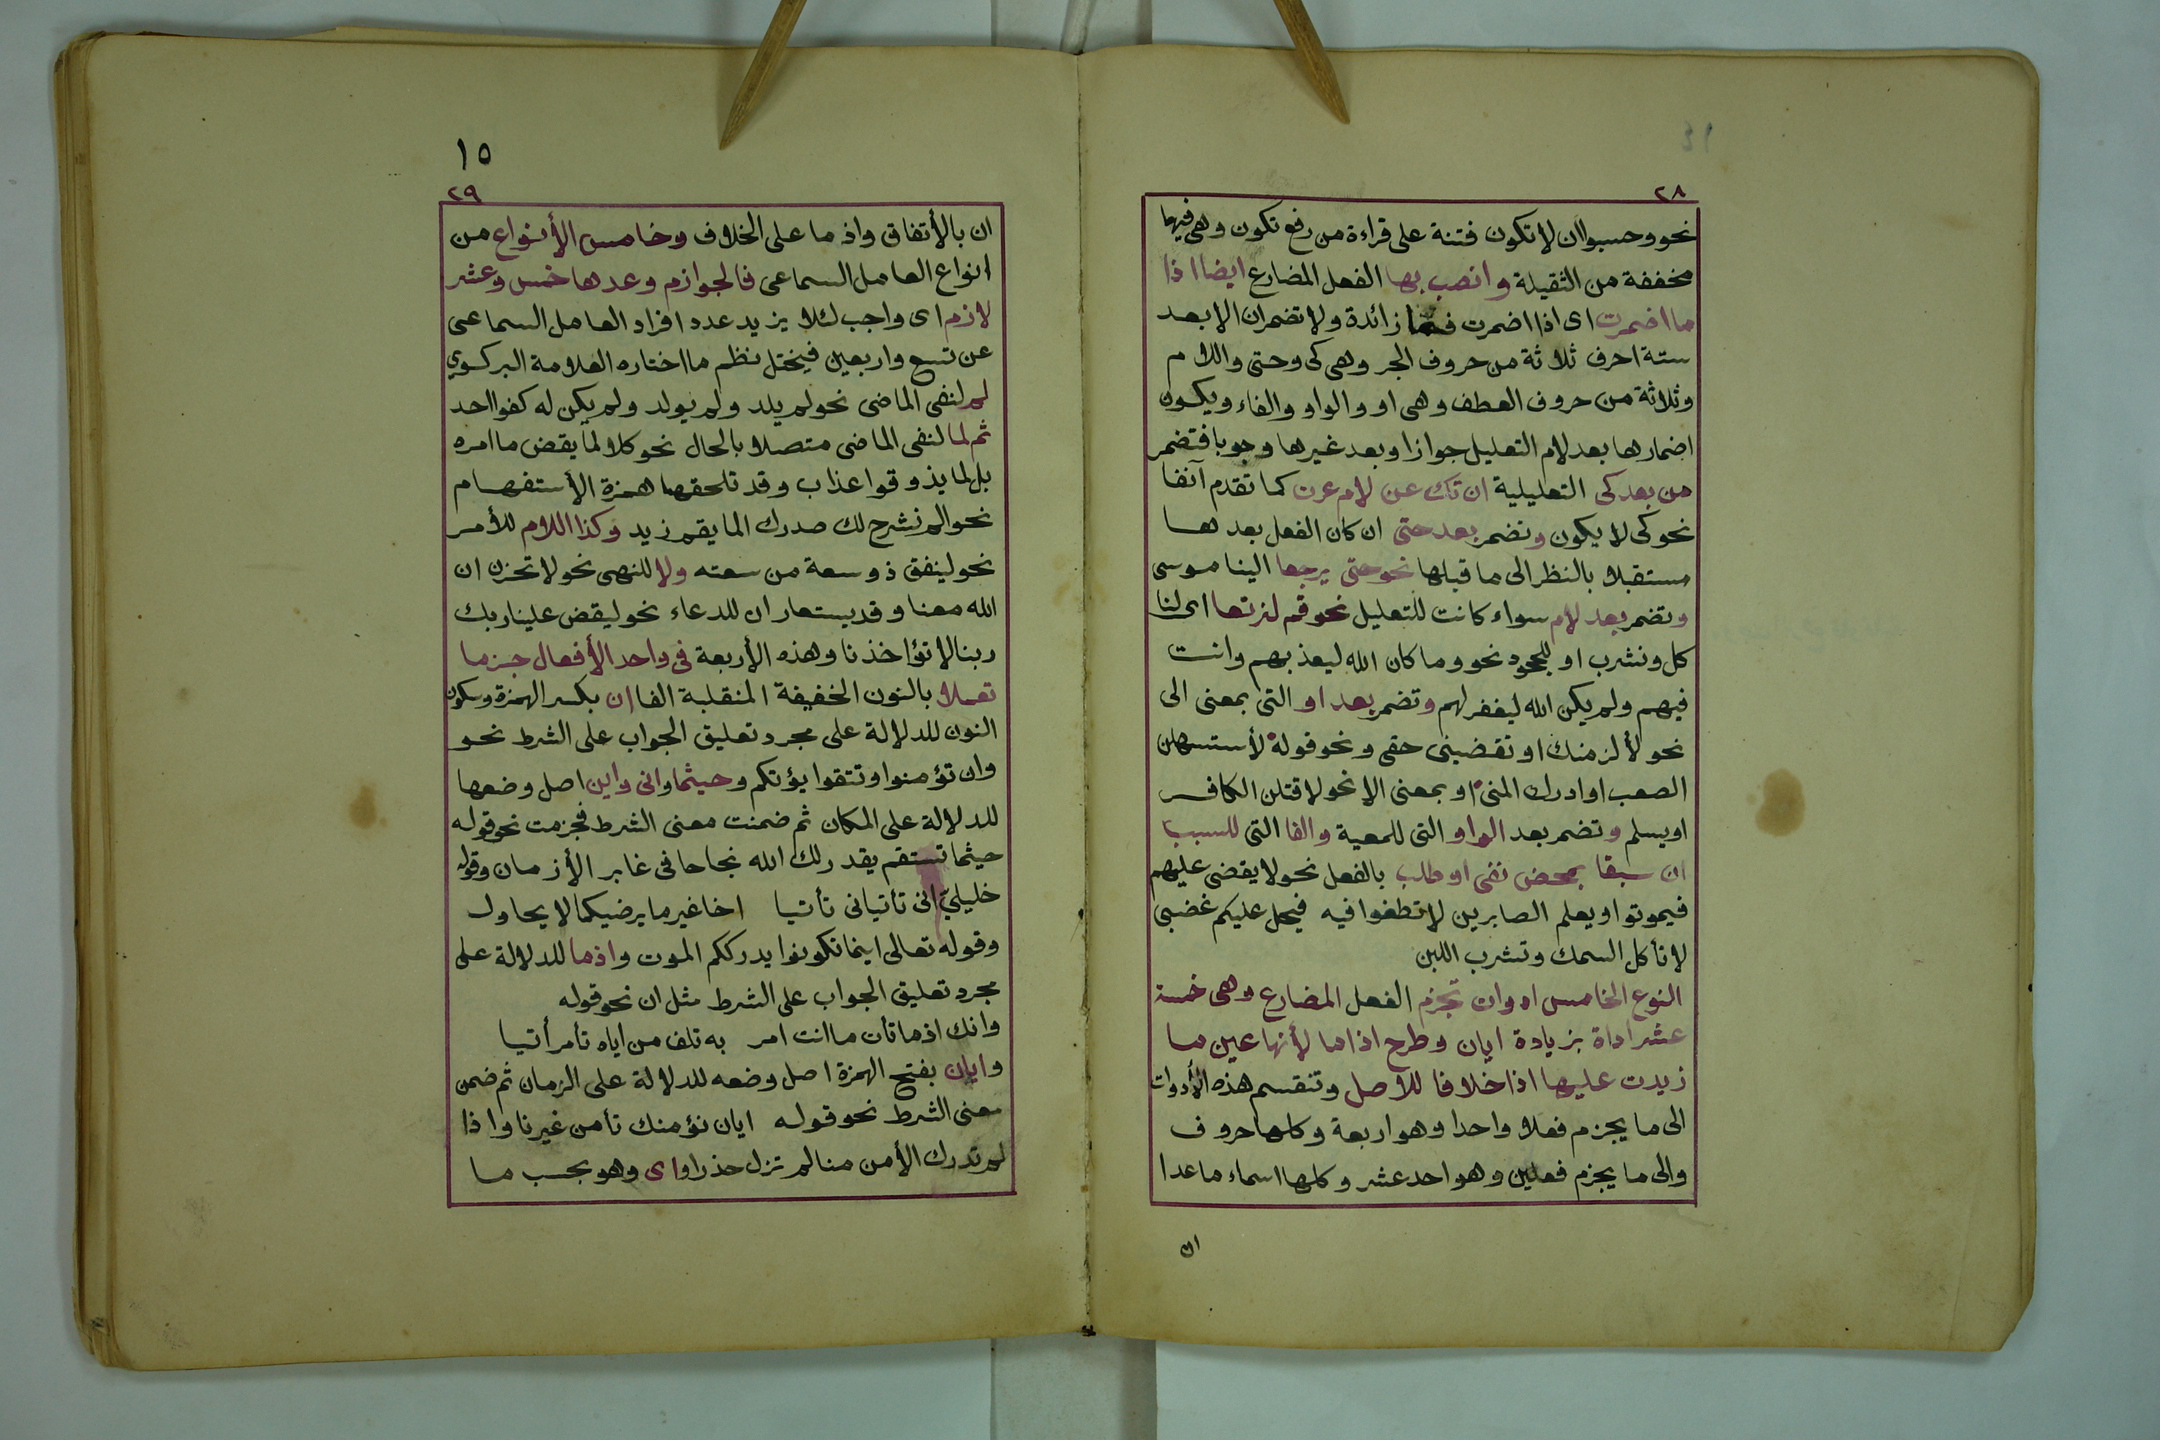 ١٤
٢٨
نحو وحسبوا ان لا تكون فتنة على قراءة من رفع تكون وهى فيها
مخففة من الثقيلة وانصب بها الفعل المضارع ايضا اذا
ما اضمرت اى اذا اضمرت فما زائدة ولا تضمر ان الا بعد
ستة احرف ثلاثة من حروف الجر وهى كى وحتى واللام
وثلاثة من حروف العطف وهى او والواو والفاء ويكون
اضمارها بعد لام التعليل جوازا وبعد غيرها وجوبا فتضمر
من بعد كى التعليلية ان تك عن لام عرت كما تقدم آنفا
نحو كى لا يكون وتضمر بعد حتى ان كان الفعل بعدها
مستقبلا بالنظر الى ما قبلها نحو حتى يرجعا الينا موسى
وتضمر بعد لام سواء كانت للتعليل نحو قم لنرتعا اى لنا
كل ونشرب او للجحود نحو وما كان الله ليعذبهم وانت
فيهم ولم يكن الله ليغفر لهم وتضمر بعد او التى بمعنى الى
نحو لألزمنك او تقضينى حقى ونحو قوله لأستسهلن
الصعب او ادرك المنى او بمعنى الا نحو لاقتلن الكافر
او يسلم وتضمر بعد الواو التى للمعية والفا التى للسببيا
ان سبقا بمحض نفى او طلب بالفعل نحو لا يقضى عليهم
فيموتوا ويعلم الصابرين لا تطغوا فيه فيحل عليكم غضبى
لا تأكل السمك وتشرب اللبن
النوع الخامس ادوات تجزم الفعل المضارع وهى خمسة
عشر اداة بزيادة ايان وطرح اذا ما لأنها عين ما
زيدت عليها اذا خلافا للاصل وتنقسم هذه الأدوات
الى ما يجزم فعلا واحدا وهو اربعة وكلها حروف
والى ما يجزم فعلين وهو احد عشر وكلها اسماء ما عدا
ان
١٥
٢٩
ان بالأتفاق واذ ما على الخلاف وخامس الأنواع من
انواع العامل السماعى فالجوازم وعدها خمس وعشر
لازم اى واجب لئلا يزيد عدد افراد العامل السماعى
عن تسع واربعين فيختل نظم ما اختاره العلامة البركوي
لم لنفى الماضى نحو لم يلد ولم يولد ولم يكن له كفوا احد
ثم لما لنفى الماضى متصلا بالحال نحو كلا لما يقض ما امره
بل لما يذوقوا عذاب وقد تلحقهما همزة الأستفهام
نحو الم نشرح لك صدرك الما يقم زيد وكذا اللام للأمر
نحو لينفق ذو سعة من سعته ولا للنهى نحو لا تحزن ان
الله معنا وقد يستعاران للدعاء نحو ليقض علينا ربك
ربنا لا تؤاخذنا وهذه الأربعة فى واحد الأفعال جزما
تعملا بالنون الخفيفة المنقلبة الفا ان بكسر الهمزة وسكون
النون للدلالة على مجرد تعليق الجواب على الشرط نحو
وان تؤمنوا وتتقوا يؤتكم وحيثما وانى واين اصل وضعها
للدلالة على المكان ثم ضمنت معنى الشرط فجزمت نحو قوله
حيثما تستقم يقدر لك الله نجاحا فى غابر الأزمان وقوله
خليليّ انى تأتيانى تأتيا اخا غير ما يرضيكما لا يحاول
وقوله تعالى اينما تكونوا يدرككم الموت واذما للدلالة على
مجرد تعليق الجواب على الشرط مثل ان نحو قوله
وانك اذما تأت ما انت امر به تلف من اياه تأمر أتيا
وايان بفتح الهمزة اصل وضعه للدلالة على الزمان ثم ضمن
معنى الشرط نحو قوله ايان نؤمنك تأمن غيرنا واذا
لم تدرك الأمن منا لم تزل حذرا واى وهو بحسب ما